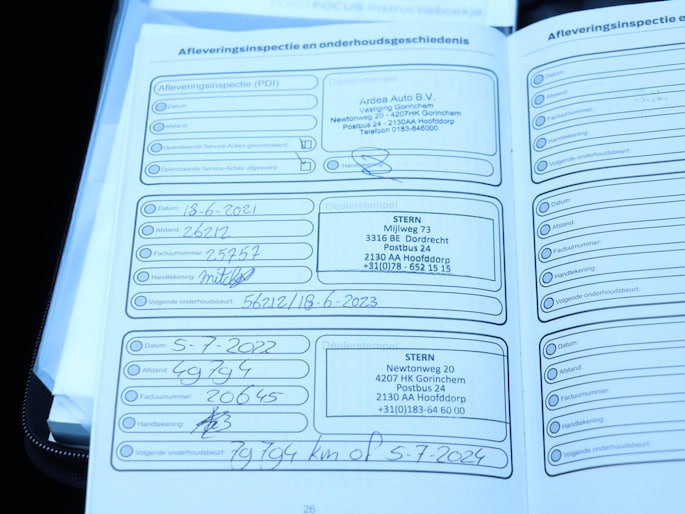 FORD FOCUS instructieboekje
Afleveringsinspectie en onderhoudsgeschiedenis
Afleveringsinspectie (PDI)
Datum:
Afstand:
Openstaande Service-Acties gecontroleerd:
Openstaande Service-Acties uitgevoerd:
Dealerstempel
Ardea Auto B.V.
Vestiging Gorinchem
Newtonweg 20 - 4207HK Gorinchem
Postbus 24 - 2130AA Hoofddorp
Telefoon 0183-646000
Handtekening:
Datum: 18-6-2021
Afstand: 26212
Factuurnummer: 25757
Handtekening:
Dealerstempel
STERN
Mijlweg 73
3316 BE Dordrecht
Postbus 24
2130 AA Hoofddorp
+31(0)78 - 652 15 15
Volgende onderhoudsbeurt: 56212/18-6-2023
Datum: 5-7-2022
Afstand: 49794
Factuurnummer: 20645
Handtekening:
Dealerstempel
STERN
Newtonweg 20
4207 HK Gorinchem
Postbus 24
2130 AA Hoofddorp
+31(0)183-64 60 00
Volgende onderhoudsbeurt: 79794 km of 5-7-2024
26
Afleveringsinspectie e
Datum:
Afstand:
Factuurnummer:
Handtekening:
Volgende onderhoudsbeurt:
Datum:
Afstand:
Factuurnummer:
Handtekening:
Volgende onderhoudsbeurt:
Datum:
Afstand:
Factuurnummer:
Handtekening:
Volgende onderhoudsbeurt: